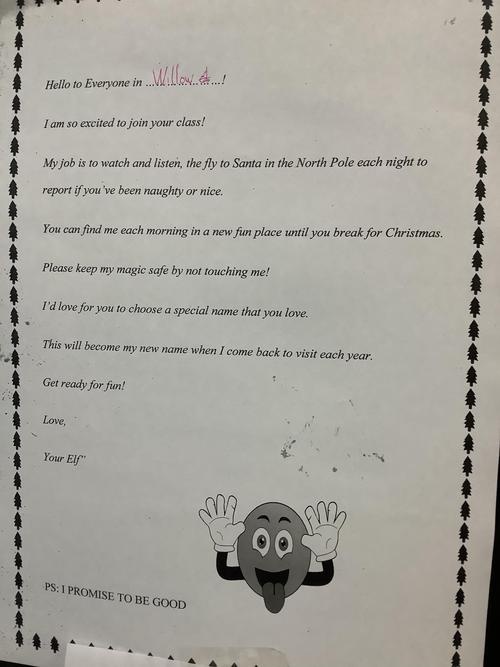 Hello to Everyone in ...Willow...!
I am so excited to join your class!
My job is to watch and listen, the fly to Santa in the North Pole each night to
report if you've been naughty or nice.
You can find me each morning in a new fun place until you break for Christmas.
Please keep my magic safe by not touching me!
I'd love for you to choose a special name that you love.
This will become my new name when I come back to visit each year.
Get ready for fun!
Love,
Your Elf"
PS: I PROMISE TO BE GOOD